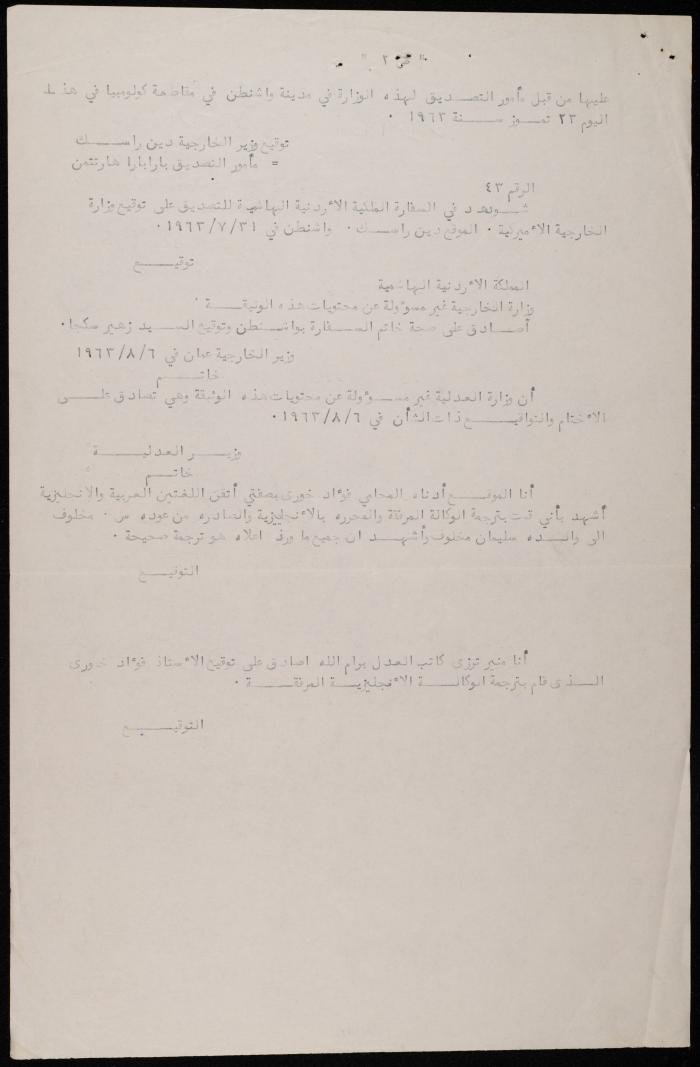 " ص ٢ "
عليها من قبل مأمور التصديق لهذه الوزارة في مدينة واشنطن في مقاطعة كولومبيا في هذا
اليوم ٢٣ تموز سنة ١٩٦٣ ٠
توقيع وزير الخارجية دين راسك
= مأمور التصديق بارابارا هارتتمن
الرقم ٤٣
شوهد في السفارة الملكية الأردنية الهاشمية للتصديق على توقيع وزارة
الخارجية الأميركية ٠ الموقع دين راسك ٠ واشنطن في ١٩٦٣/٧/٣١ ٠
توقيع
المملكة الأردنية الهاشمية
وزارة الخارجية غير مسؤولة عن محتويات هذه الوثيقة ٠
أصادق على صحة خاتم السفارة بواشنطن وتوقيع السيد زهير سكجا ٠
وزير الخارجية عمان في ١٩٦٣/٨/٦
خاتم
أن وزارة العدلية غير مسؤولة عن محتويات هذه الوثيقة وهي تصادق على
الاختام والتواقيع ذات الشأن في ١٩٦٣/٨/٦ ٠
وزير العدلية
خاتم
أنا الموقع أدناه المحامي فؤاد خوري بصفتي أتقن اللغتين العربية والانجليزية
أشهد بأني قمت بترجمة الوكالة المرفقة والمحرره بالأنجليزية والصادره من عوده س ٠ مخلوف
الى والده سليمان مخلوف وأشهد ان جميع ما ورد اعلاه هو ترجمة صحيحة ٠
التوقيع
أنا منير ترزي كاتب العدل برام الله اصادق على توقيع الأستاذ فؤاد خوري
الذي قام بترجمة الوكالة الأنجليزية المرفقة ٠
التوقيع